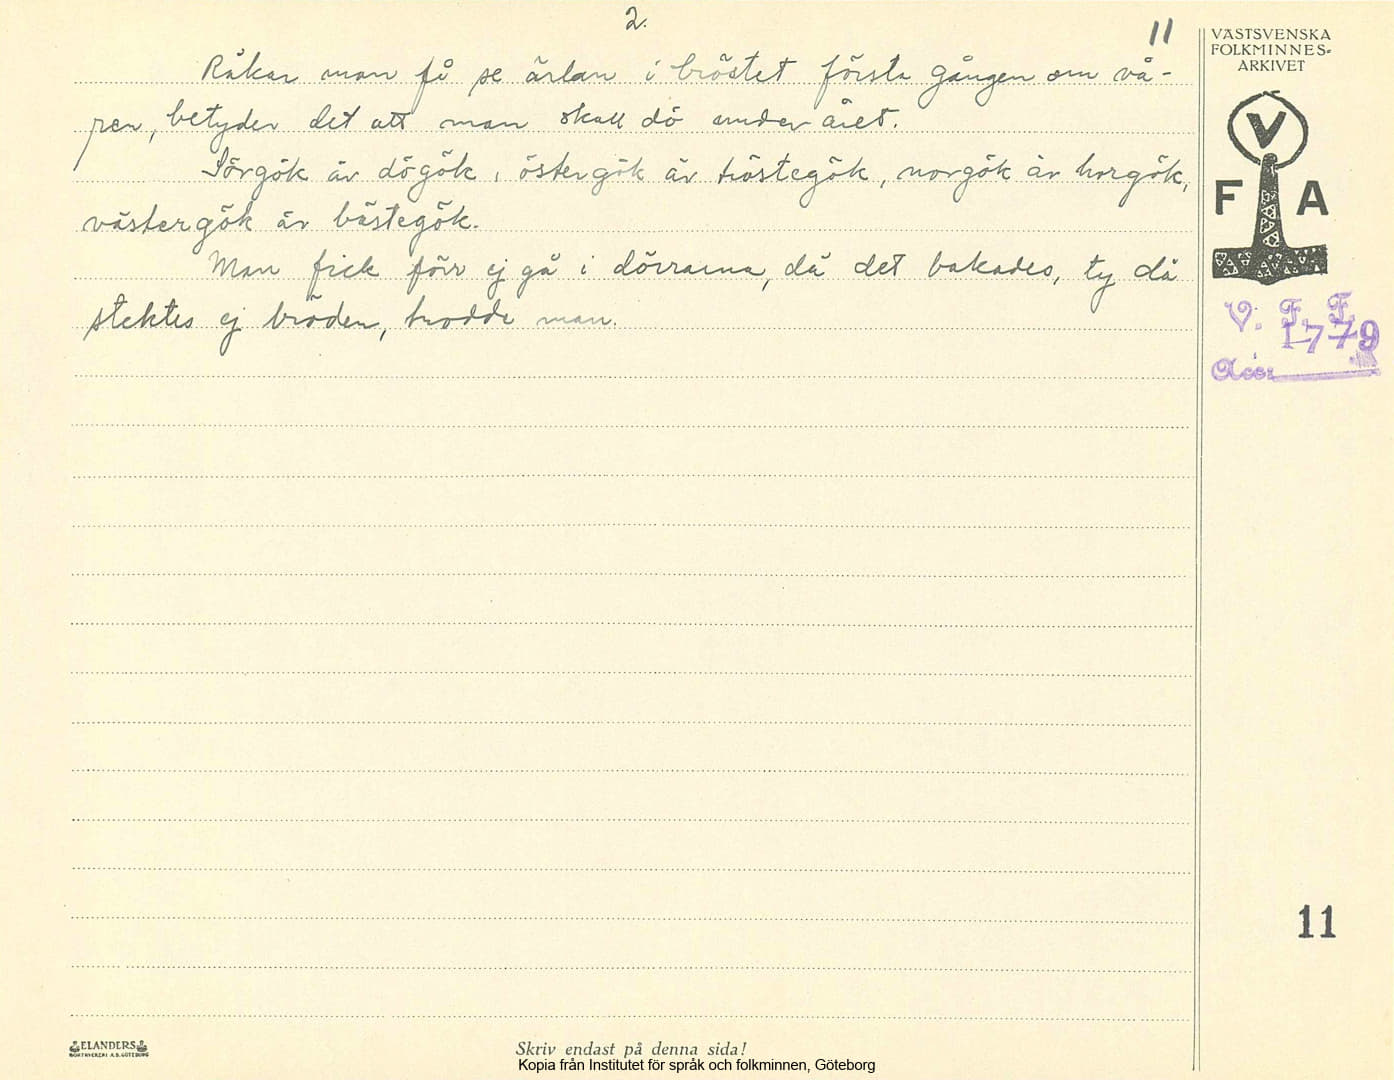 2.
11
Råkar man få se ärlan i bröstet första gången om vå-
ren, betyder det att man skall dö under året.
Sörgök är dögök, östergök är tröstegök, norgök är horgök,
västergök är bästegök.
Man fick förr ej gå i dörrarna, då det bakades, ty då
stektes ej bröden, trodde man.
VÄSTSVENSKA
FOLKMINNES-
ARKIVET
V
F A
V. F. F.
1779
Acc:
11
ELANDERS
BOKTRYCKERI A.B. GÖTEBORG
Skriv endast på denna sida!
Kopia från Institutet för språk och folkminnen, Göteborg